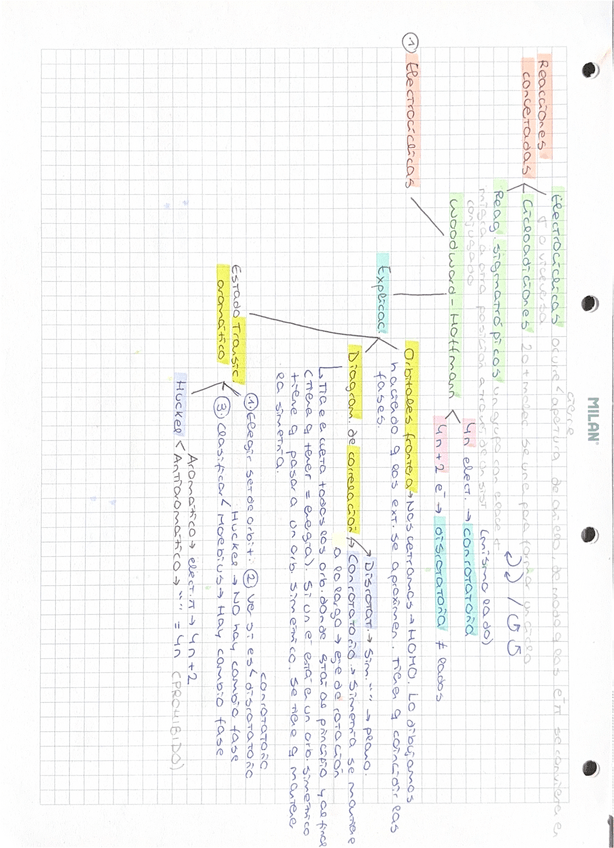 MILAN
Reacciones concetadas
Electrocíclicas ocurre apertura de anillo, de modo q los e⁻π se convierten en
σ o viceversa
Cicloadiciones 2 o + molec se unen para formar un ciclo
Reac. sigmatrópicas un grupo con enlace σ
migra a otra posición a través de un sist
conjugado
① Electrocíclicas
Woodward-Hoffmann
4n elect. → conrotatoria
(mismo lado)
4n+2 e⁻ → disrotatoria ≠ lados
Explicaci
Orbitales frontera → Nos centramos → HOMO. Lo dibujamos
haciendo q los ext. se aproximen. Tienen q coincidir las
fases.
Diagram. de correlación
Disrotat. → Sim. " " → plano.
Conrotatoria → Simetría se mantiene
a lo largo → eje de rotación
↳ Tiene en cuenta todos los orb. donde están al principio y al final
(Tienen q tener = energía). Si un e⁻ está en un orb. simétrico
tiene q pasar a un orb simétrico. Se tiene q mantener
la simetría.
Estado Transic aromático
① Elegir set de orbit. ② Ver si es
conrotatoria
disrotatoria
③ Clasificar
Huckel → No hay cambio fase
Moebius → Hay cambio fase
Huckel
Aromático → elect. π → 4n+2
Antiaromático → " " = 4n (PROHIBIDO)